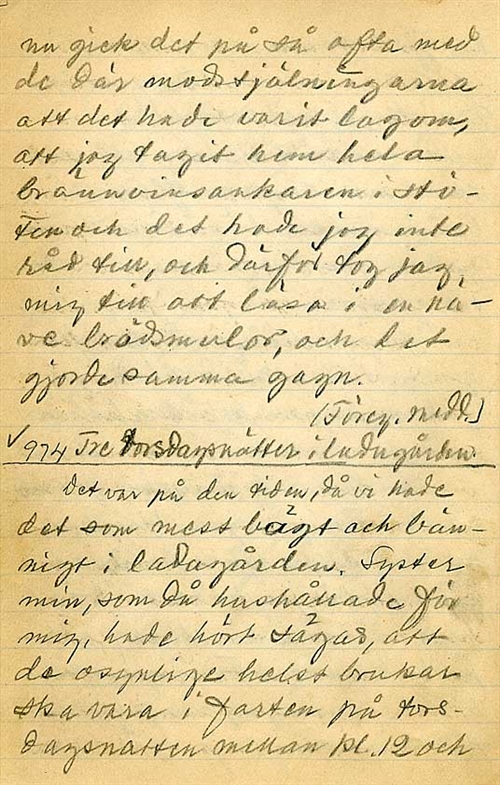 nu gick det på så ofta med
de där modstjälningarna
att det hade varit lagom,
att jag tagit hem hela
brännvinsankaren i stö-
ten och det hade jag inte
råd till, och därför tog jag
mig till att läsa i en nä-
ve brödsmulor, och det
gjorde samma gagn.
(Föreg. medd.)
✓ 974 Tre torsdagsnätter i ladugården.
Det var på den tiden, då vi hade
det som mest bågt och bån-
nigt i ladugården. Syster
min, som då hushållade för
mig, hade hört sägas, att
de osynlige helst brukar
ska vara i farten på tors-
dagsnatten mellan kl. 12 och